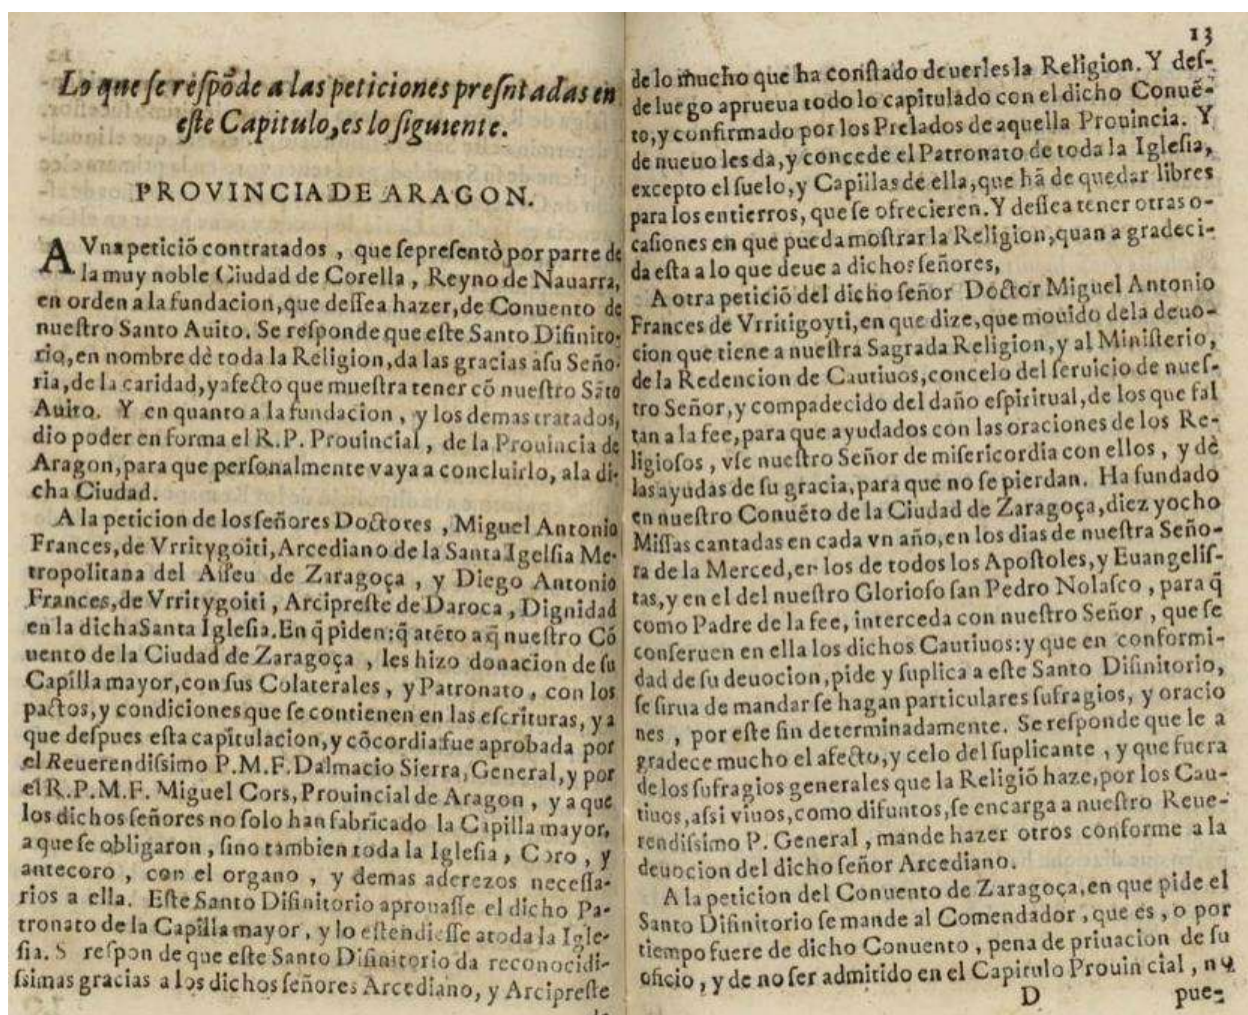 Lo que se respõde a las peticiones presntadas en
este Capitulo, es lo siguiente.
PROVINCIA DE ARAGON.
A Vna peticiõ contratados , que sepresentò por parte de
la muy noble Ciudad de Corella , Reyno de Nauarra,
en orden a la fundacion, que dessea hazer, de Conuento de
nuestro Santo Auito. Se responde que este Santo Difinito-
rio, en nombre dè toda la Religion, da las gracias asu Seño-
ria, de la caridad, yafecto que muestra tener cõ nuestro Sãto
Auito. Y en quanto a la fundacion , y los demas tratados,
dio poder en forma el R. P. Prouincial , de la Prouincia de
Aragon, para que personalmente vaya a concluirlo, ala di-
cha Ciudad.
A la peticion de los señores Doctores , Miguel Antonio
Frances, de Vrritygoiti, Arcediano de la Santa Igelsia Me-
tropolitana del Aiseu de Zaragoça , y Diego Antonio
Frances, de Vrritygoiti , Arcipreste de Daroca , Dignidad
en la dichaSanta Iglesia. En q̃ piden: q̃ atẽto a q̃ nuestro Cõ
uento de la Ciudad de Zaragoça , les hizo donacion de su
Capilla mayor, con sus Colaterales , y Patronato , con los
pactos, y condiciones que se contienen en las escrituras, y a
que despues esta capitulacion, y cõcordia fue aprobada por
el Reuerendissimo P. M. F. Dalmacio Sierra, General, y por
el R. P. M. F. Miguel Cors, Prouincial de Aragon , y a que
los dichos señores no solo han fabricado la Capilla mayor,
a que se obligaron , sino tambien toda la Iglesia , Coro , y
antecoro , con el organo , y demas aderezos necessa-
rios a ella. Este Santo Difinitorio aprouasse el dicho Pa-
tronato de la Capilla mayor , y lo estendiesse atoda la Igle-
sia. S respon de que este Santo Difinitorio da reconocidi-
ssimas gracias a los dichos señores Arcediano, y Arcipreste
13
de lo mucho que ha constado deuerles la Religion. Y des-
de luego aprueua todo lo capitulado con el dicho Conuẽ-
to, y confirmado por los Prelados de aquella Prouincia. Y
de nueuo les da, y concede el Patronato de toda la Iglesia,
excepto el suelo, y Capillas de ella, que hã de quedar libres
para los entierros, que se ofrecieren. Y dessea tener otras o-
casiones en que pueda mostrar la Religion, quan a gradeci-
da esta a lo que deue a dichos señores,
A otra peticiõ del dicho señor Doctor Miguel Antonio
Frances de Vrritigoyti, en que dize, que mouido dela deuo-
cion que tiene a nuestra Sagrada Religion, y al Ministerio,
de la Redencion de Cautiuos, concelo del seruicio de nues-
tro Señor, y compadecido del daño espiritual, de los que fal
tan a la fee, para que ayudados con las oraciones de los Re-
ligiosos , vse nuestro Señor de misericordia con ellos , y dè
las ayudas de su gracia, para que no se pierdan. Ha fundado
en nuestro Conuẽto de la Ciudad de Zaragoça, diez yocho
Missas cantadas en cada vn año, en los dias de nuestra Seño-
ra de la Merced, en los de todos los Apostoles, y Euangelis-
tas, y en el del nuestro Glorioso san Pedro Nolasco , para q̃
como Padre de la fee, interceda con nuestro Señor , que se
conseruen en ella los dichos Cautiuos: y que en conformi-
dad de su deuocion, pide y suplica a este Santo Difinitorio,
se sirua de mandar se hagan particulares sufragios, y oracio
nes , por este fin determinadamente. Se responde que le a
gradece mucho el afecto, y celo del suplicante , y que fuera
de los sufragios generales que la Religiõ haze, por los Cau-
tiuos, assi viuos, como difuntos, se encarga a nuestro Reue-
rendissimo P. General , mande hazer otros conforme a la
deuocion del dicho señor Arcediano.
A la peticion del Conuento de Zaragoça, en que pide el
Santo Difinitorio se mande al Comendador , que es , o por
tiempo fuere de dicho Conuento , pena de priuacion de su
oficio , y de no ser admitido en el Capitulo Prouin cial , no
D pue-